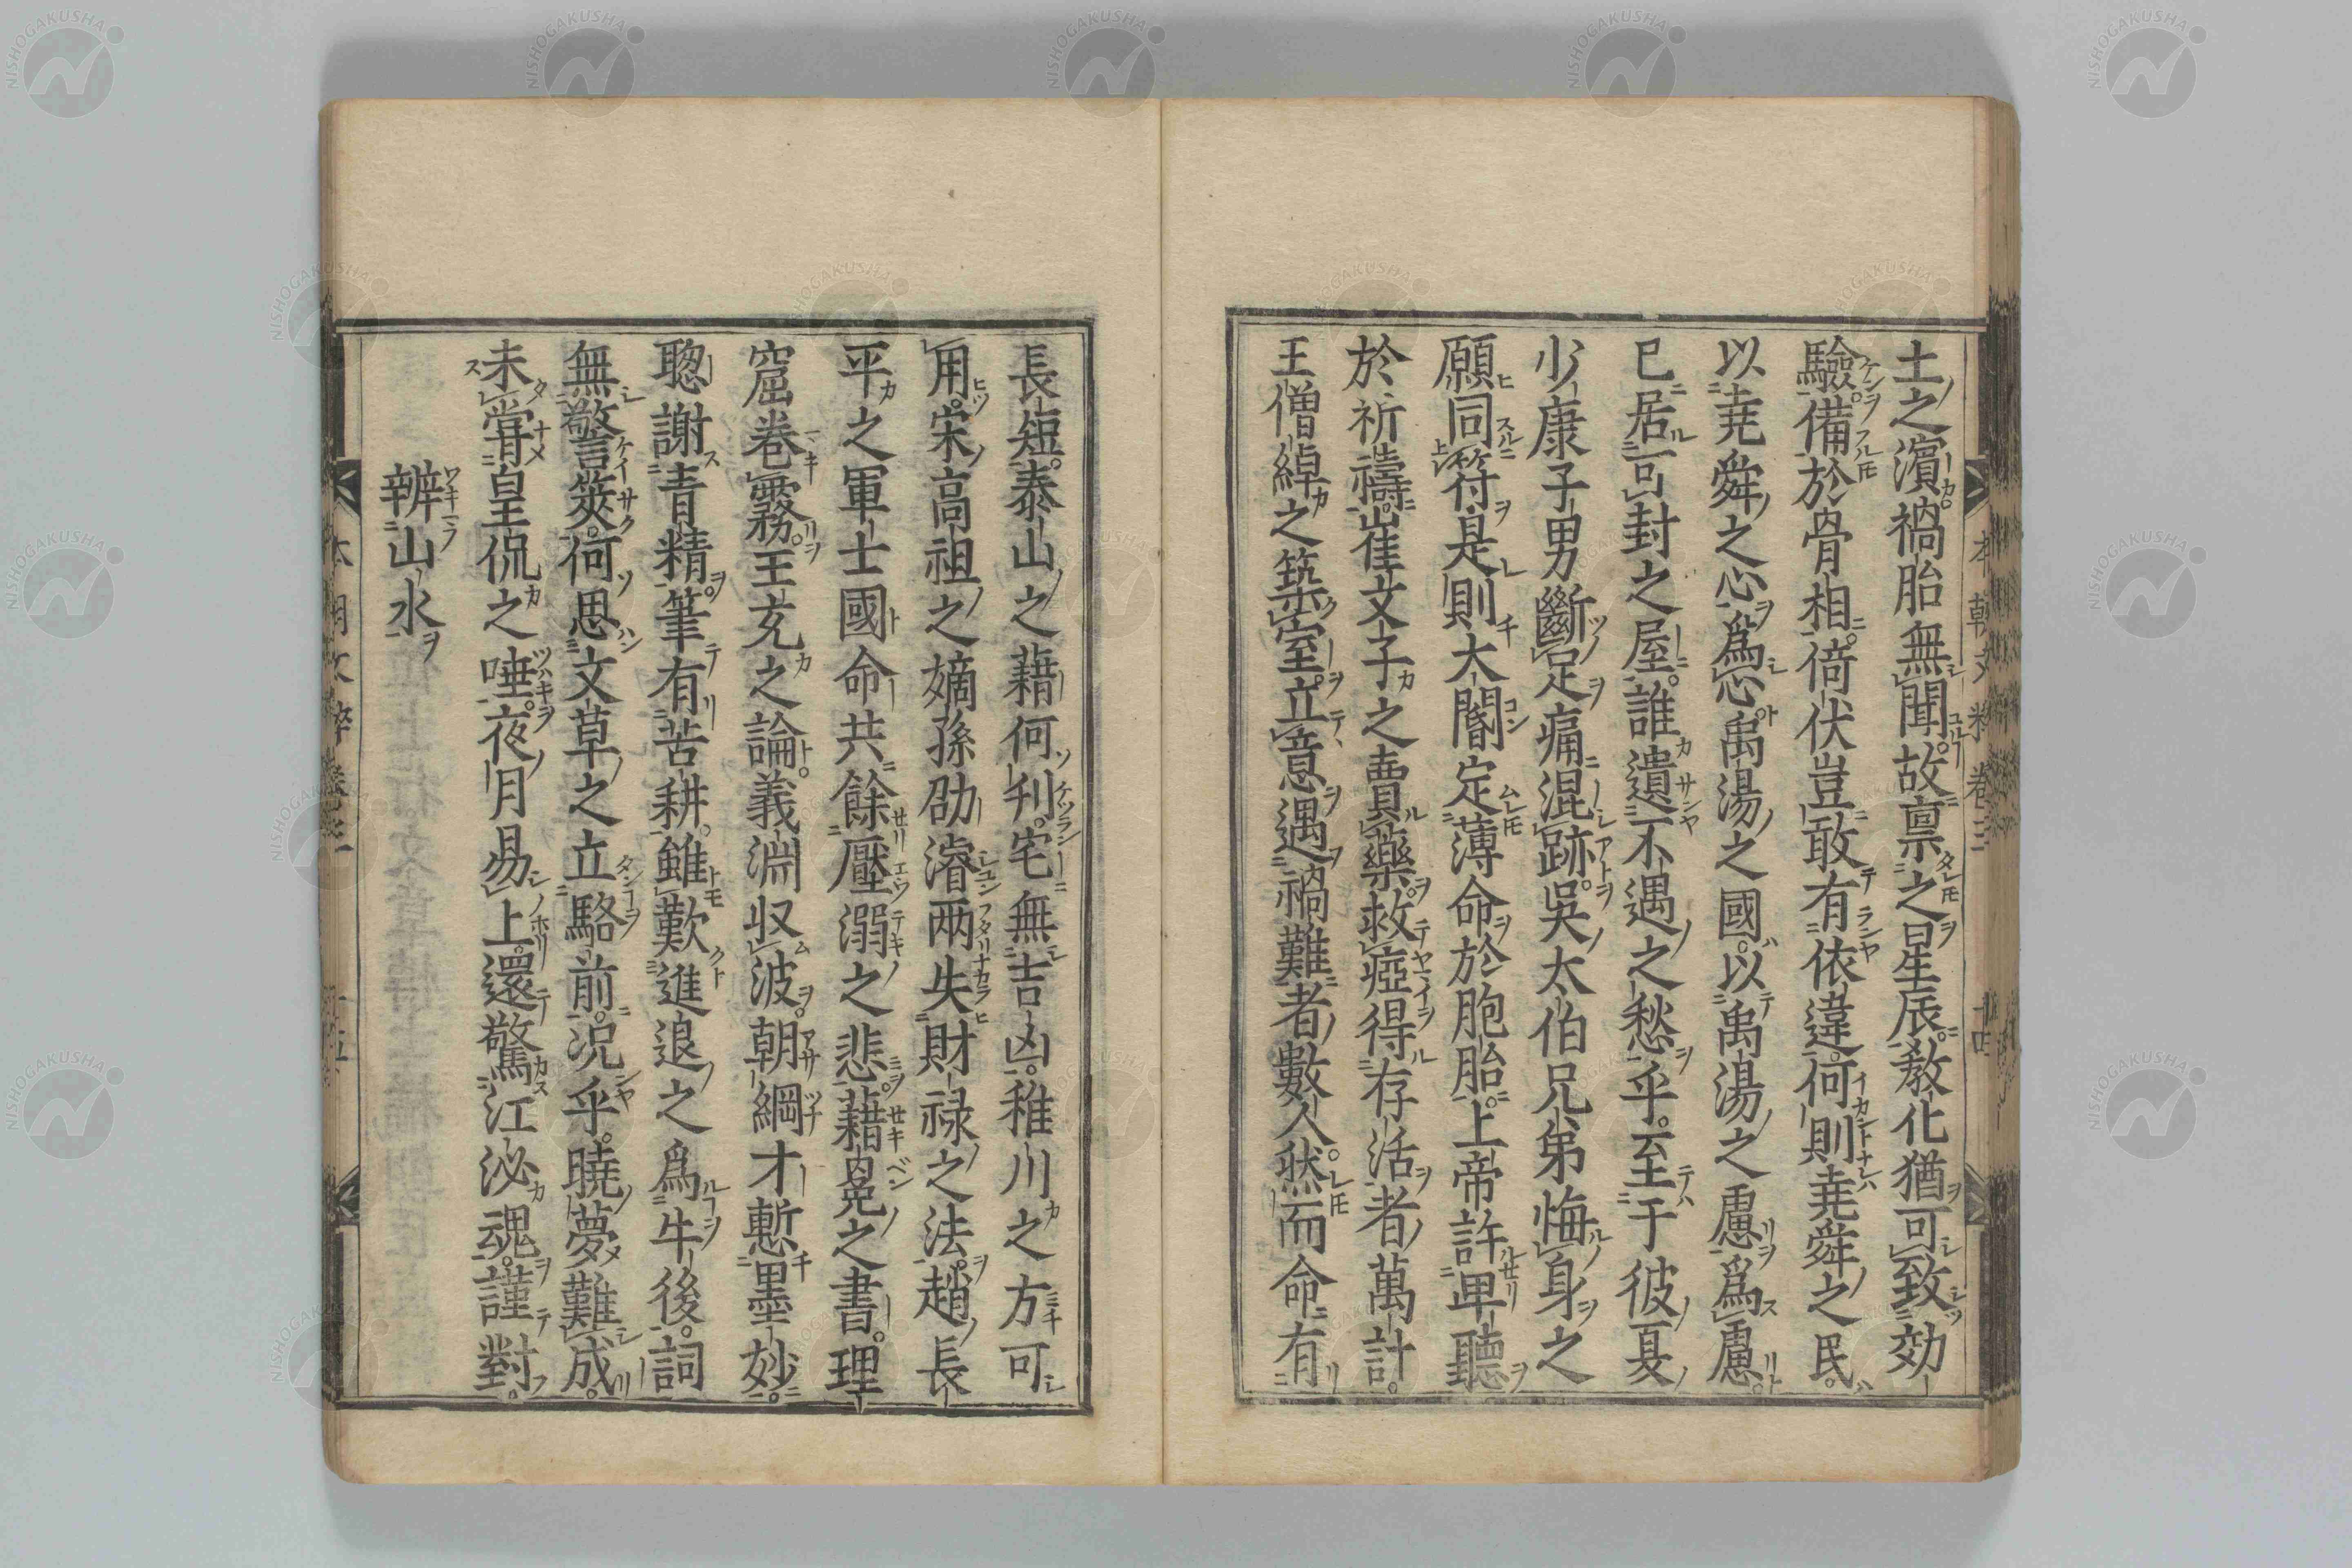 土之濱禍胎無聞故禀之星辰教化猶可致効
驗備於骨相倚伏豈敢有依違何則堯舜之民
以堯舜之心爲心禹湯之國以禹湯之慮爲慮
已居可封之屋誰遺不遇之愁乎至于彼夏
少康子男斷足痛混跡吳太伯兄弟悔身之
願同符是則大闇定薄命於胞胎上帝許卑聽
於祈禱崔文子之賣藥救瘂得存活者萬計
王僧綽之築室立意遇禍難者數人然而命有
長短泰山之藉何刋宅無吉凶稚川之方可
用宋高祖之嫡孫劭濬兩失財禄之法趙長
平之軍士國命共餘壓溺之悲藉冕之書理
窟卷霧王充之論義淵収波朝綱才慙墨妙
聡謝青精筆有苦耕雖歎進退之爲牛後詞
無警策何思文草之立駱前況乎曉夢難成
未甞皇侃之唾夜月易上還驚江泌魂謹對
辨山水
本朝文粹 卷三